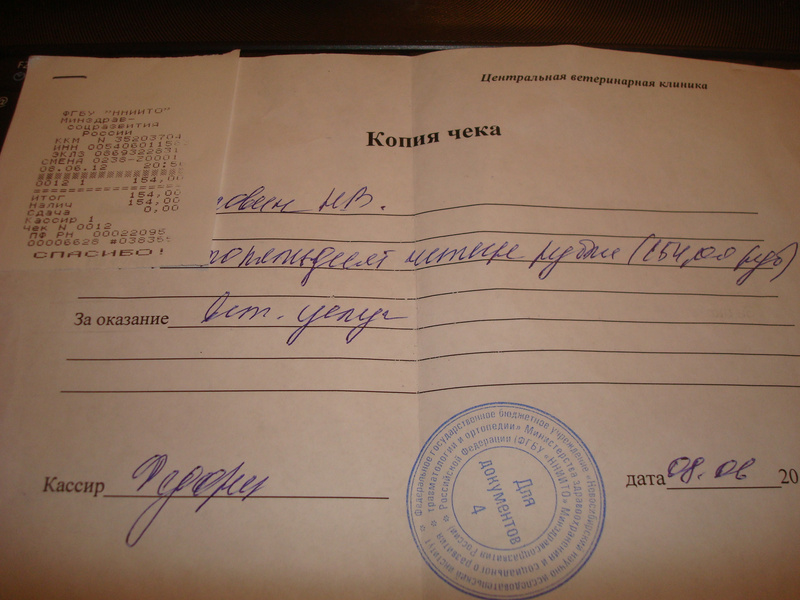 Центральная ветеринарная клиника
Копия чека
ФГБУ "ННИИТО"
Минздрав-
соцразвития
России
ККМ N 35203704
ИНН 00540601156
ЭКЛЗ 0869322831
СМЕНА 0238-Z0001
08.06.12 20:5
0012 1 154,00
Итог 154,00
Налич 154,00
Сдача 0,00
Кассир 1
Чек N 0012
ПФ РН 00022095
00006628 #038355
СПАСИБО!
Н.В.
четыре рубля (154,00 руб)
За оказание вет. услуг
Кассир
дата 08.06 20
Федеральное государственное бюджетное учреждение «Новосибирский научно-исследовательский институт
травматологии и ортопедии» Министерства здравоохранения и социального развития
Российской Федерации (ФГБУ «ННИИТО» Минздравсоцразвития России)
Для
документов
4